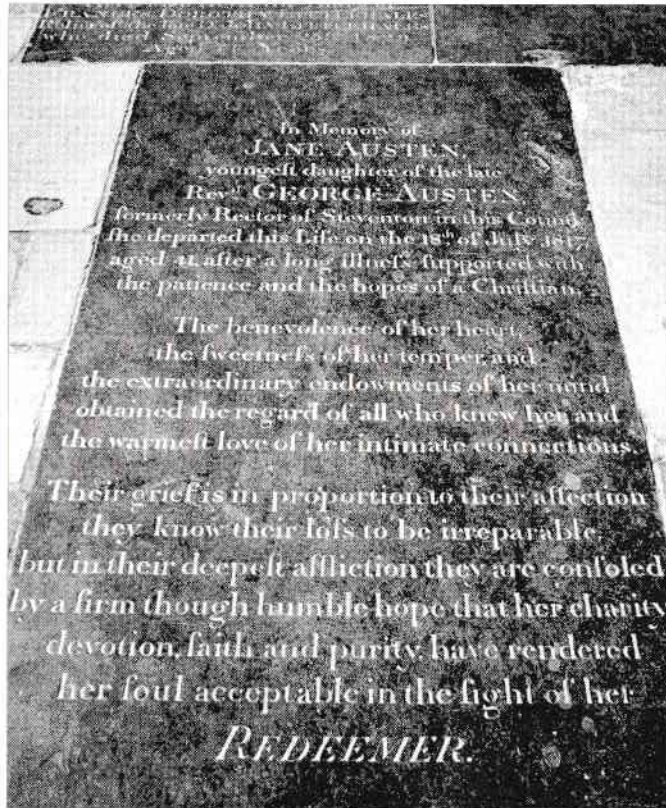 who died September
Aged
In Memory of
JANE AUSTEN,
youngeſt daughter of the late
Revᵈ GEORGE AUSTEN
formerly Rector of Steventon in this County
ſhe departed this Life on the 18ᵗʰ of July 1817,
aged 41, after a long illneſs ſupported with
the patience and the hopes of a Chriſtian.
The benevolence of her heart,
the ſweetneſs of her temper, and
the extraordinary endowments of her mind
obtained the regard of all who knew her and
the warmeſt love of her intimate connections.
Their grief is in proportion to their affection
they know their loſs to be irreparable,
but in their deepeſt affliction they are conſoled
by a firm though humble hope that her charity
devotion, faith and purity, have rendered
her ſoul acceptable in the ſight of her
REDEEMER.